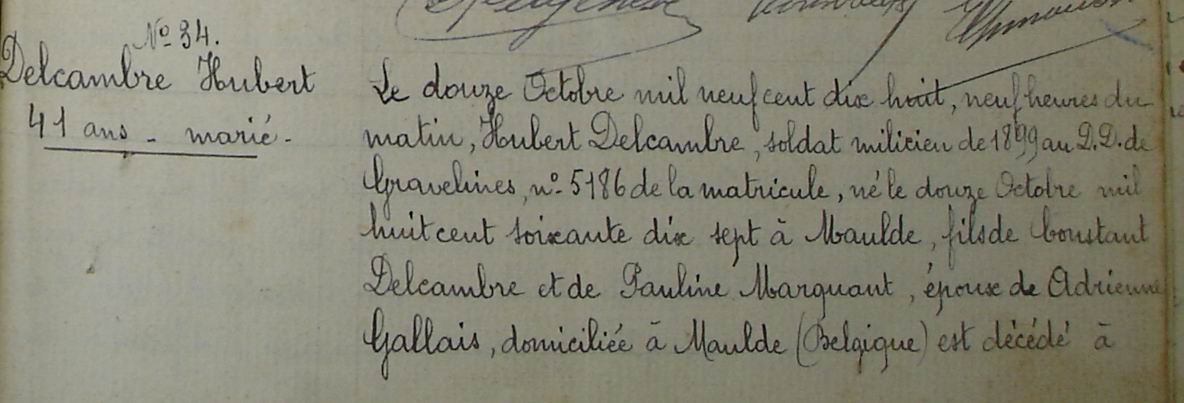 Nº 34.
Delcambre Hubert
41 ans - marié -
Le douze Octobre mil neuf cent dix huit, neuf heures du
matin, Hubert Delcambre, soldat milicien de 1899 au D.D. de
Gravelines, nº 5186 de la matricule, né le douze Octobre mil
huit cent soixante dix sept à Maulde, fils de Constant
Delcambre et de Pauline Marquant, époux de Adrienne
Gallais, domiciliée à Maulde (Belgique) est décédé à